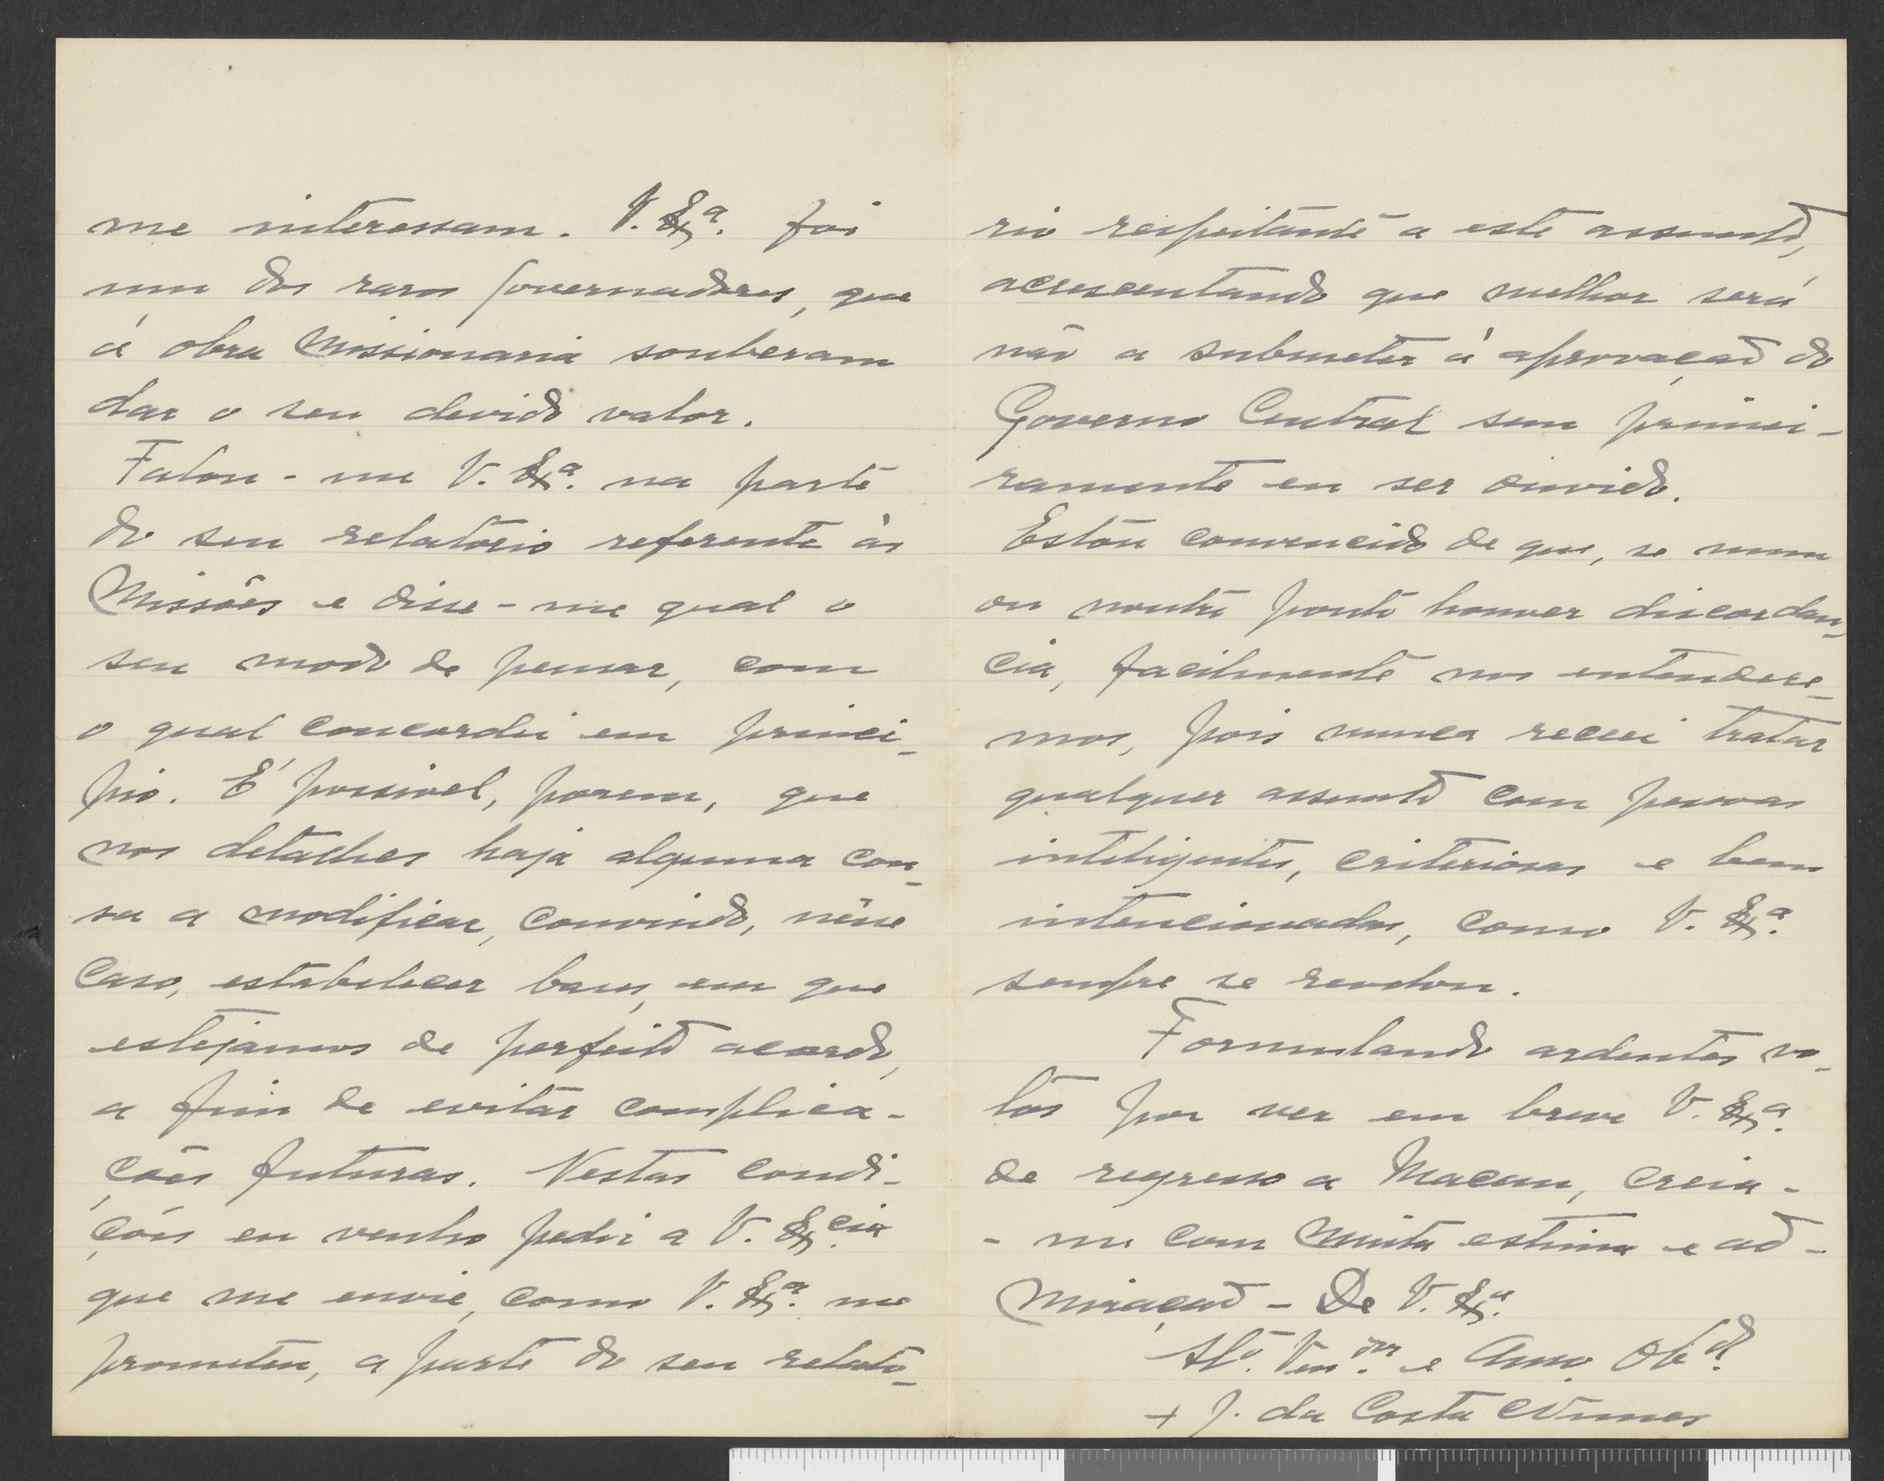 me interessam. V. Exª. foi
um dos raros Governadores, que
á obra Missionaria souberam
dar o seu devido valor.
Falou-me V. Exª. na parte
do seu relatório referente às
Missões e disse-me qual o
seu modo de pensar, com
o qual concordei em princi-
pio. É possivel, porem, que
nos detalhes haja alguma cou-
sa a modificar, convindo, nêsse
caso, estabelecer bases, em que
estejamos de perfeito acordo,
a fim de evitar complica-
ções futuras. Nestas condi-
ções eu venho pedir a V. Excia
que me envie, como V. Exª. me
prometeu, a parte do seu relató-
rio respeitante a este assunto,
acrescentando que melhor será
não a submeter á aprovação do
Governo Central sem primei-
ramente eu ser ouvido.
Estou convencido de que, se num
ou noutro ponto houver discordan-
cia, facilmente nos entendere-
mos, pois nunca receei tratar
qualquer assunto com pessoas
inteligentes, criteriosas e bem
intencionadas, como V. Exª.
sempre se revelou.
Formulando ardentes vo-
tos por ver em breve V. Exª.
de regresso a Macau, creia-
-me com muita estima e ad-
miração - De V. Exª.
Atº. Venor. e Amo. Obdo.
+ J. da Costa Nunes